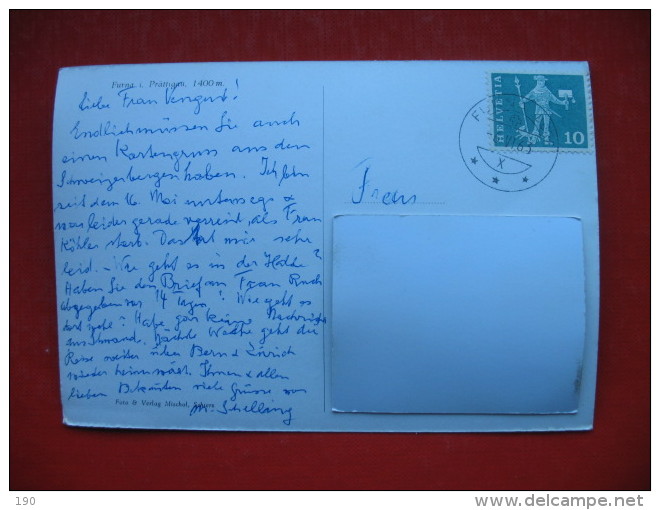 Furna i. Prättigau, 1400 m.
Liebe Frau
Endlich müssen Sie auch
einen Kartengruss aus den
Schweizerbergen haben. Ich bin
seit dem 16. Mai unterwegs &
war leider gerade verreist, als Frau
Köhler starb. Das tut mir sehr
leid. – Wie geht es in der Halde?
Haben Sie den Brief an Frau
abgegeben vor 14 Tagen? Wie geht es
dort wohl? Habe gar keine Nachricht
Nächste Woche geht die
Reise weiter über Bern & Zürich
wieder heimwärts. Ihnen & allen
lieben Bekannten viele Grüsse von
Schelling
Foto & Verlag Mischol, Schiers
Frau
HELVETIA
10
X
190
delcampe.net